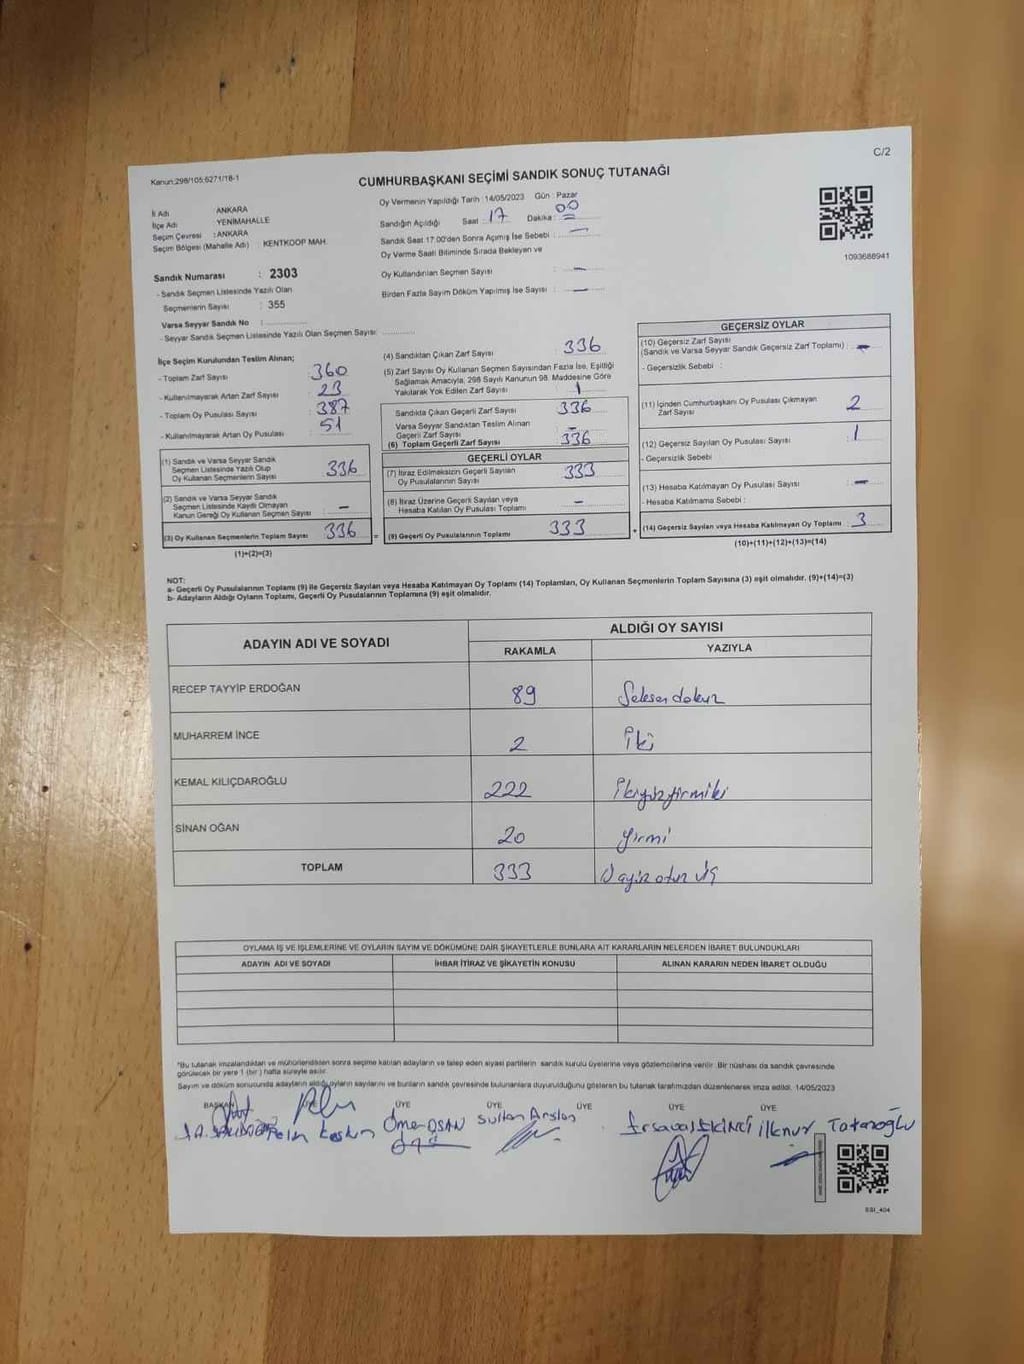 C/2
Kanun:298/105;6271/18-1
CUMHURBAŞKANI SEÇİMİ SANDIK SONUÇ TUTANAĞI
İl Adı : ANKARA
İlçe Adı : YENİMAHALLE
Seçim Çevresi : ANKARA
Seçim Bölgesi (Mahalle Adı) KENTKOOP MAH.
Sandık Numarası : 2303
- Sandık Seçmen Listesinde Yazılı Olan
Seçmenlerin Sayısı : 355
Varsa Seyyar Sandık No :
- Seyyar Sandık Seçmen Listesinde Yazılı Olan Seçmen Sayısı:
Oy Vermenin Yapıldığı Tarih :14/05/2023 Gün : Pazar
Sandığın Açıldığı Saat : 17 Dakika : 00
Sandık Saat 17.00'den Sonra Açmış İse Sebebi : —
Oy Verme Saati Bitiminde Sırada Bekleyen ve
Oy Kullandırılan Seçmen Sayısı —
Birden Fazla Sayım Döküm Yapılmış İse Sayısı : —
1093688941
İlçe Seçim Kurulundan Teslim Alınan;
- Toplam Zarf Sayısı : 360
- Kullanılmayarak Artan Zarf Sayısı : 23
- Toplam Oy Pusulası Sayısı : 387
- Kullanılmayarak Artan Oy Pusulası : 51
(1) Sandık ve Varsa Seyyar Sandık
Seçmen Listesinde Yazılı Olup
Oy Kullanan Seçmenlerin Sayısı : 336
(2) Sandık ve Varsa Seyyar Sandık
Seçmen Listesinde Kaydı Olmayan
Kanun Gereği Oy Kullanan Seçmen Sayısı : —
(3) Oy Kullanan Seçmenlerin Toplam Sayısı : 336
(1)+(2)=(3)
(4) Sandıktan Çıkan Zarf Sayısı 336
(5) Zarf Sayısı Oy Kullanan Seçmen Sayısından Fazla İse, Eşitliği
Sağlamak Amacıyla, 298 Sayılı Kanunun 98. Maddesine Göre
Yakılarak Yok Edilen Zarf Sayısı :
Sandıkta Çıkan Geçerli Zarf Sayısı : 336
Varsa Seyyar Sandıktan Teslim Alınan
Geçerli Zarf Sayısı : —
(6) Toplam Geçerli Zarf Sayısı : 336
GEÇERLİ OYLAR
(7) İtiraz Edilmeksizin Geçerli Sayılan
Oy Pusulalarının Sayısı : 333
(8) İtiraz Üzerine Geçerli Sayılan veya
Hesaba Katılan Oy Pusulası Toplamı : —
(9) Geçerli Oy Pusulalarının Toplamı : 333
GEÇERSİZ OYLAR
(10) Geçersiz Zarf Sayısı
(Sandık ve Varsa Seyyar Sandık Geçersiz Zarf Toplamı) : —
- Geçersizlik Sebebi :
(11) İçinden Cumhurbaşkanı Oy Pusulası Çıkmayan
Zarf Sayısı : 2
(12) Geçersiz Sayılan Oy Pusulası Sayısı : 1
- Geçersizlik Sebebi
(13) Hesaba Katılmayan Oy Pusulası Sayısı : —
- Hesaba Katılmama Sebebi :
(14) Geçersiz Sayılan veya Hesaba Katılmayan Oy Toplamı : 3
(10)+(11)+(12)+(13)=(14)
NOT:
a- Geçerli Oy Pusulalarının Toplamı (9) ile Geçersiz Sayılan veya Hesaba Katılmayan Oy Toplamı (14) Toplamları, Oy Kullanan Seçmenlerin Toplam Sayısına (3) eşit olmalıdır. (9)+(14)=(3)
b- Adayların Aldığı Oyların Toplamı, Geçerli Oy Pusulalarının Toplamına (9) eşit olmalıdır.
ADAYIN ADI VE SOYADI ALDIĞI OY SAYISI
RAKAMLA YAZIYLA
RECEP TAYYİP ERDOĞAN 89 Seksen dokuz
MUHARREM İNCE 2 İki
KEMAL KILIÇDAROĞLU 222 İkiyüzyirmiiki
SİNAN OĞAN 20 Yirmi
TOPLAM 333 otuz üç
OYLAMA İŞ VE İŞLEMLERİNE VE OYLARIN SAYIM VE DÖKÜMÜNE DAİR ŞİKAYETLERLE BUNLARA AİT KARARLARIN NELERDEN İBARET BULUNDUKLARI
ADAYIN ADI VE SOYADI İHBAR İTİRAZ VE ŞİKAYETİN KONUSU ALINAN KARARIN NEDEN İBARET OLDUĞU
*Bu tutanak imzalandıktan ve mühürlendikten sonra seçime katılan adayların ve talep eden siyasi partilerin sandık kurulu üyelerine veya gözlemcilerine verilir. Bir nüshası da sandık çevresinde
görülecek bir yere 1 (bir) hafta süreyle asılır.
Sayım ve döküm sonucunda adayların aldığı oyların sayılarını ve bunların sandık çevresinde bulunanlara duyurulduğunu gösteren bu tutanak tarafımızdan düzenlenerek imza edildi. 14/05/2023
BAŞKAN ÜYE ÜYE ÜYE ÜYE ÜYE ÜYE
Keskin Ömer OSAN Sultan Arslan EKİNCİ İlknur Tataroğlu
SSI_404